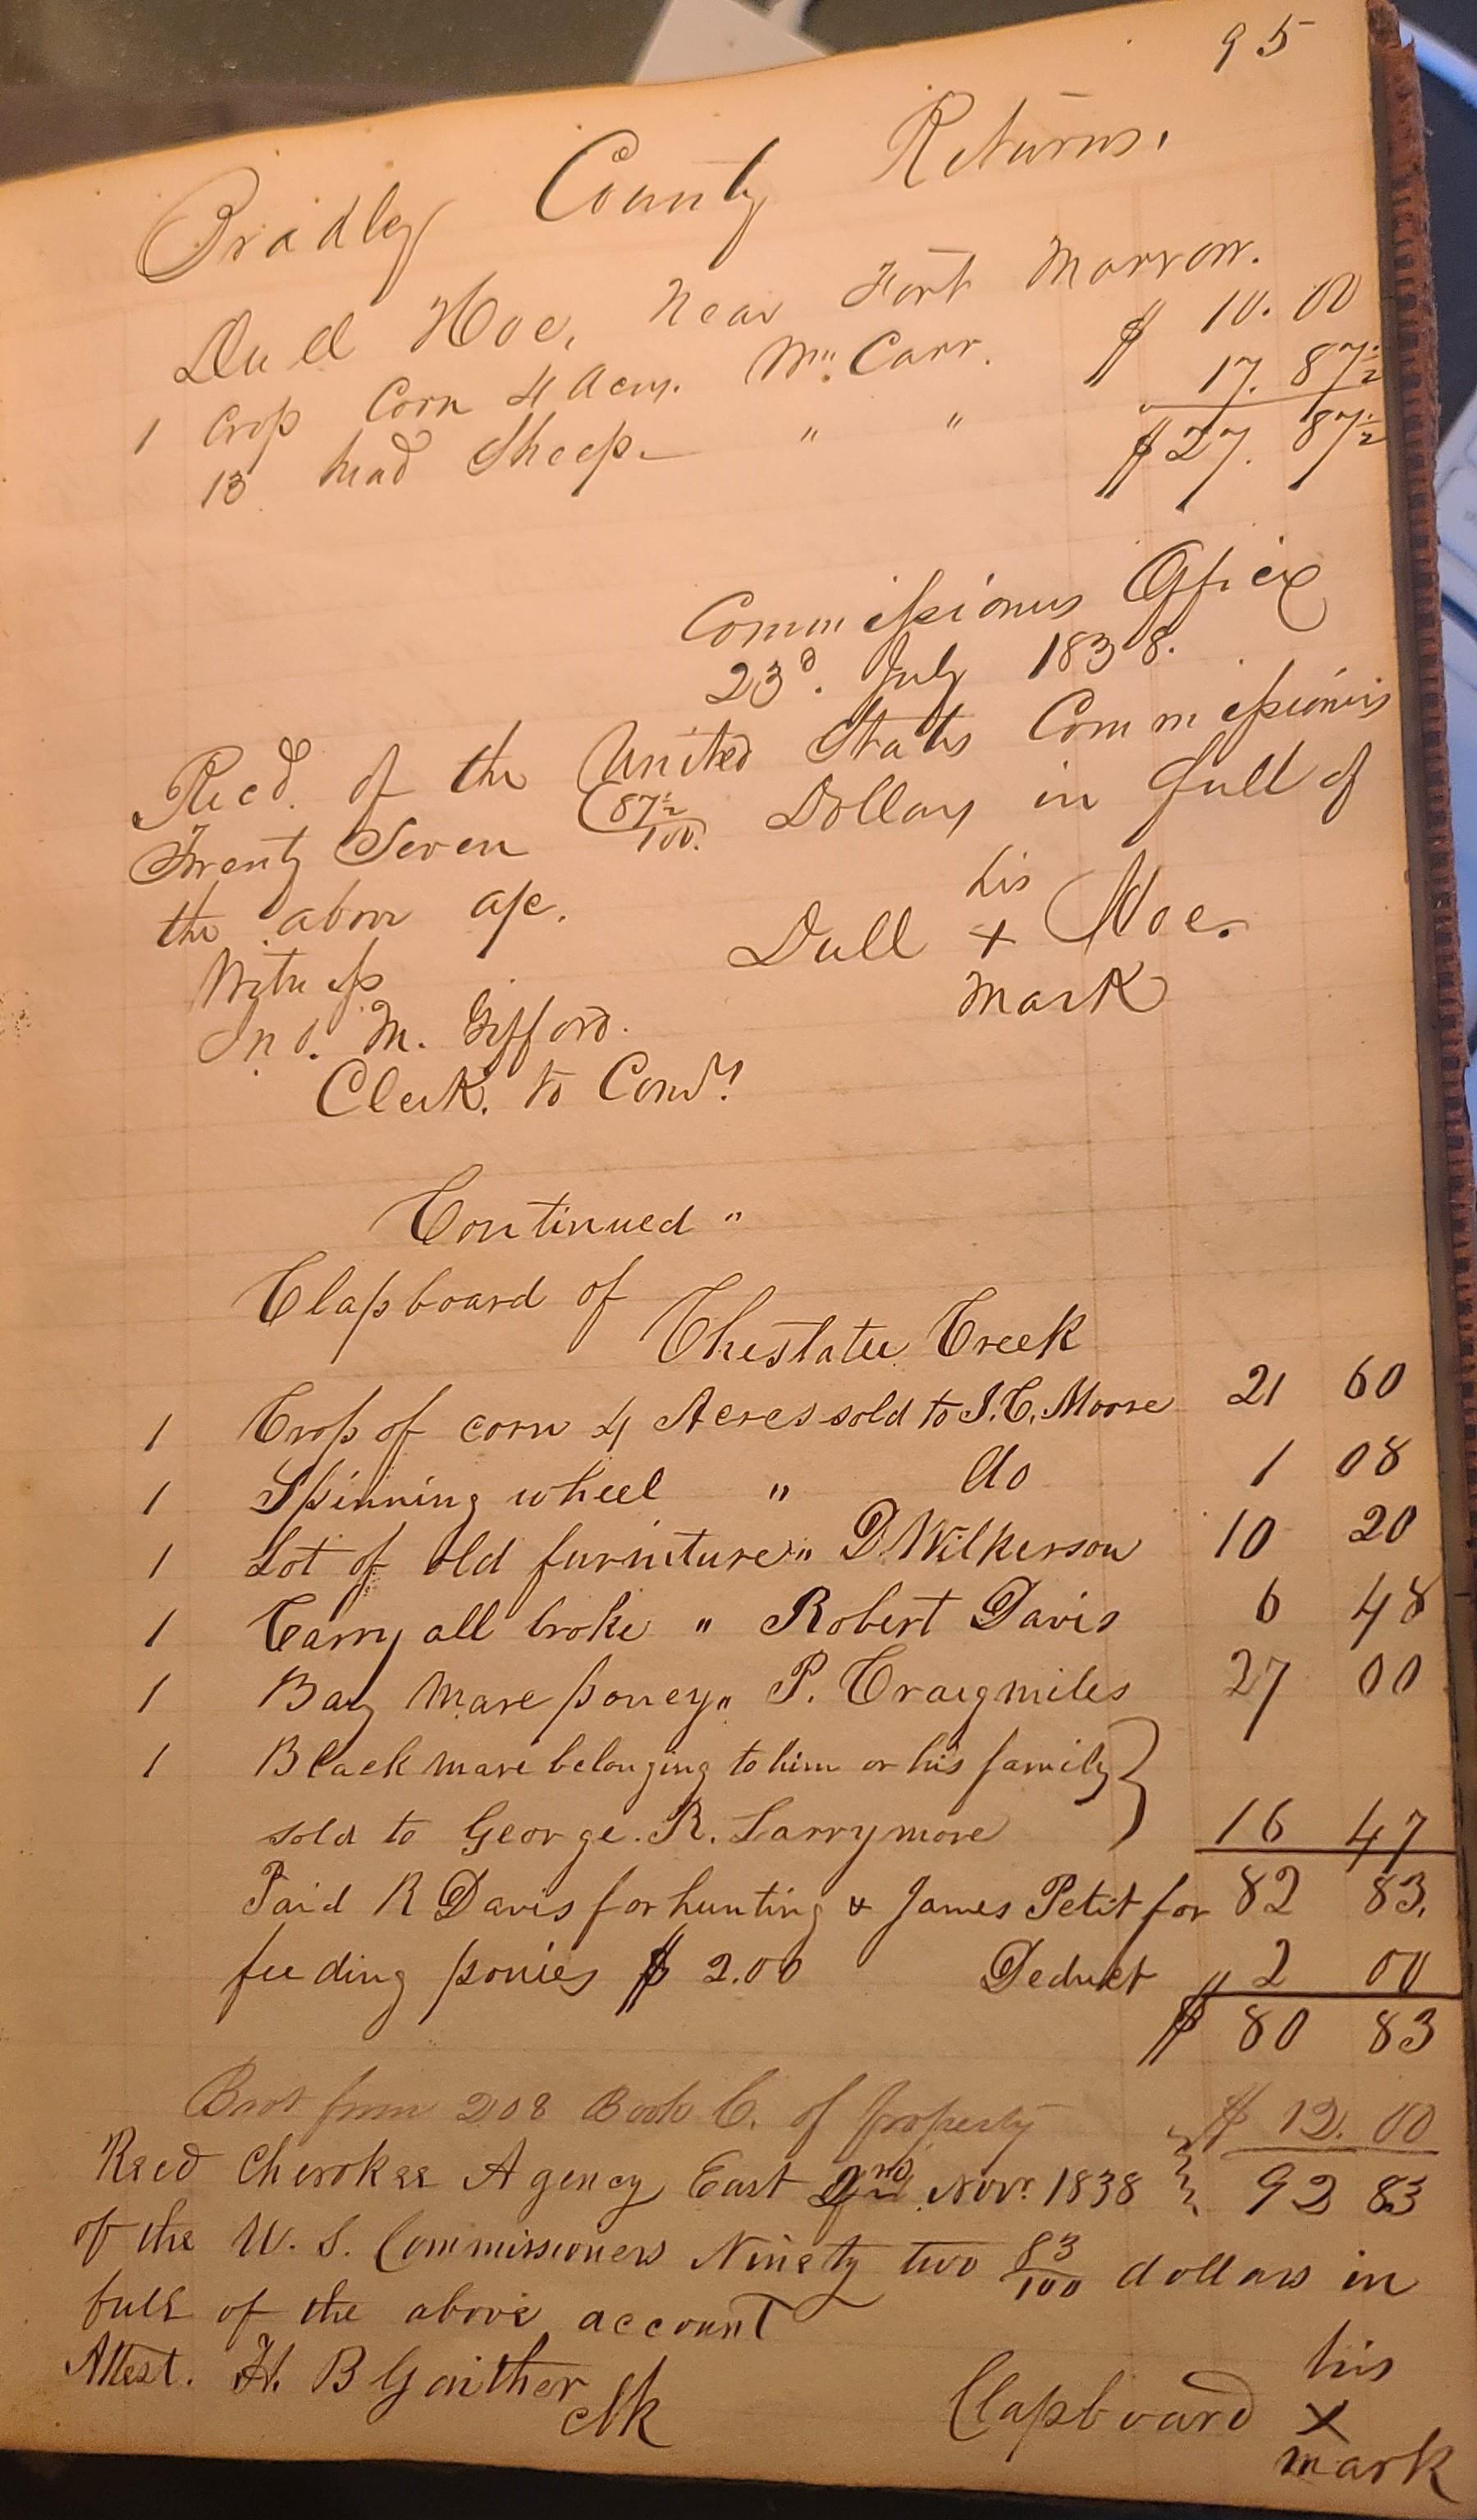 95
Bradley County Returns.
Dull Hoe, Near Fort Marrow.
1 Crop Corn 4 Acres. Mr. Carr. $ 10.00
13 head Sheep — " " 17.87½
$27.87½
Commissioners Office
23d. July 1838.
Recd. of the United States Commissioners
Twenty Seven 87½/100 Dollars in full of
the above a/c.
his
Dull x Hoe.
mark
Witness
Jno. M. Gifford.
Clerk. to Comrs.
Continued "
Clapboard of
Chestatee Creek
1 Crop of corn 4 Acres sold to J. C. Moore 21 60
1 Spinning wheel " do 1 08
1 Lot of old furniture " D. Wilkerson 10 20
1 Carry all broke " Robert Davis 6 48
1 Bay mare poney " P. Craigmiles 27 00
1 Black mare belonging to him or his family }
sold to George. R. Larrymore 16 47
Paid R Davis for hunting & James Petit for 82 83.
feeding ponies $ 2.00 Deduct 2 00
$ 80 83
Brot from 208 Book C. of property $ 12.00
Recd Cherokee Agency East 2nd Novr. 1838 92 83
of the U. S. Commissioners Ninety two 83/100 dollars in
full of the above account
Attest. H. B Gaither
clk
his
Clapboard x
mark